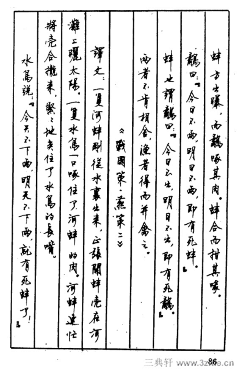 蚌方出曝，而鷸啄其肉。蚌合而拑其喙。
鷸曰：『今日不雨，明日不雨，即有死蚌。』
蚌亦謂鷸曰：『今日不出，明日不出，即有死鷸。』
兩者不肯相舍，漁者得而并禽之。
《戰國策·燕策二》
譯文：一隻河蚌剛從水裏出來，正張開蚌殼在河
灘上曬太陽。一隻水鳥一口啄住了河蚌的肉。河蚌連忙
將殼合攏來，緊緊地夾住了水鳥的長嘴。
水鳥説：『今天不下雨，明天不下雨，就有死蚌了！』
86
三典轩 www.32xue.cn